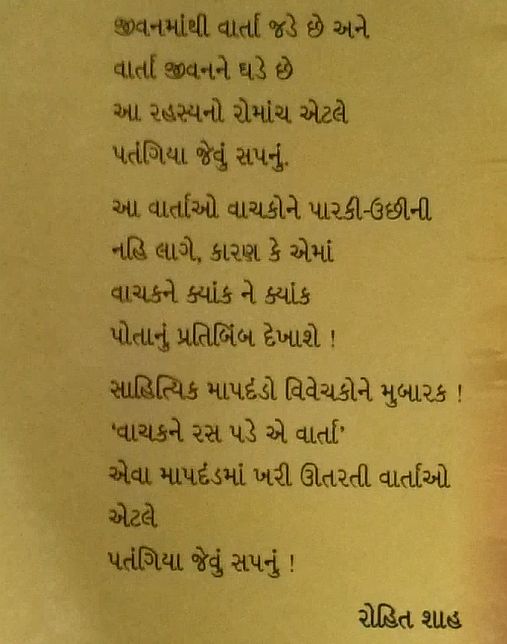 જીવનમાંથી વાર્તા જડે છે અને
વાર્તા જીવનને ઘડે છે
આ રહસ્યનો રોમાંચ એટલે
પતંગિયા જેવું સપનું.
આ વાર્તાઓ વાચકોને પારકી-ઉછીની
નહિ લાગે, કારણ કે એમાં
વાચકને ક્યાંક ને ક્યાંક
પોતાનું પ્રતિબિંબ દેખાશે !
સાહિત્યિક માપદંડો વિવેચકોને મુબારક !
‘વાચકને રસ પડે એ વાર્તા’
એવા માપદંડમાં ખરી ઊતરતી વાર્તાઓ
એટલે
પતંગિયા જેવું સપનું !
રોહિત શાહ